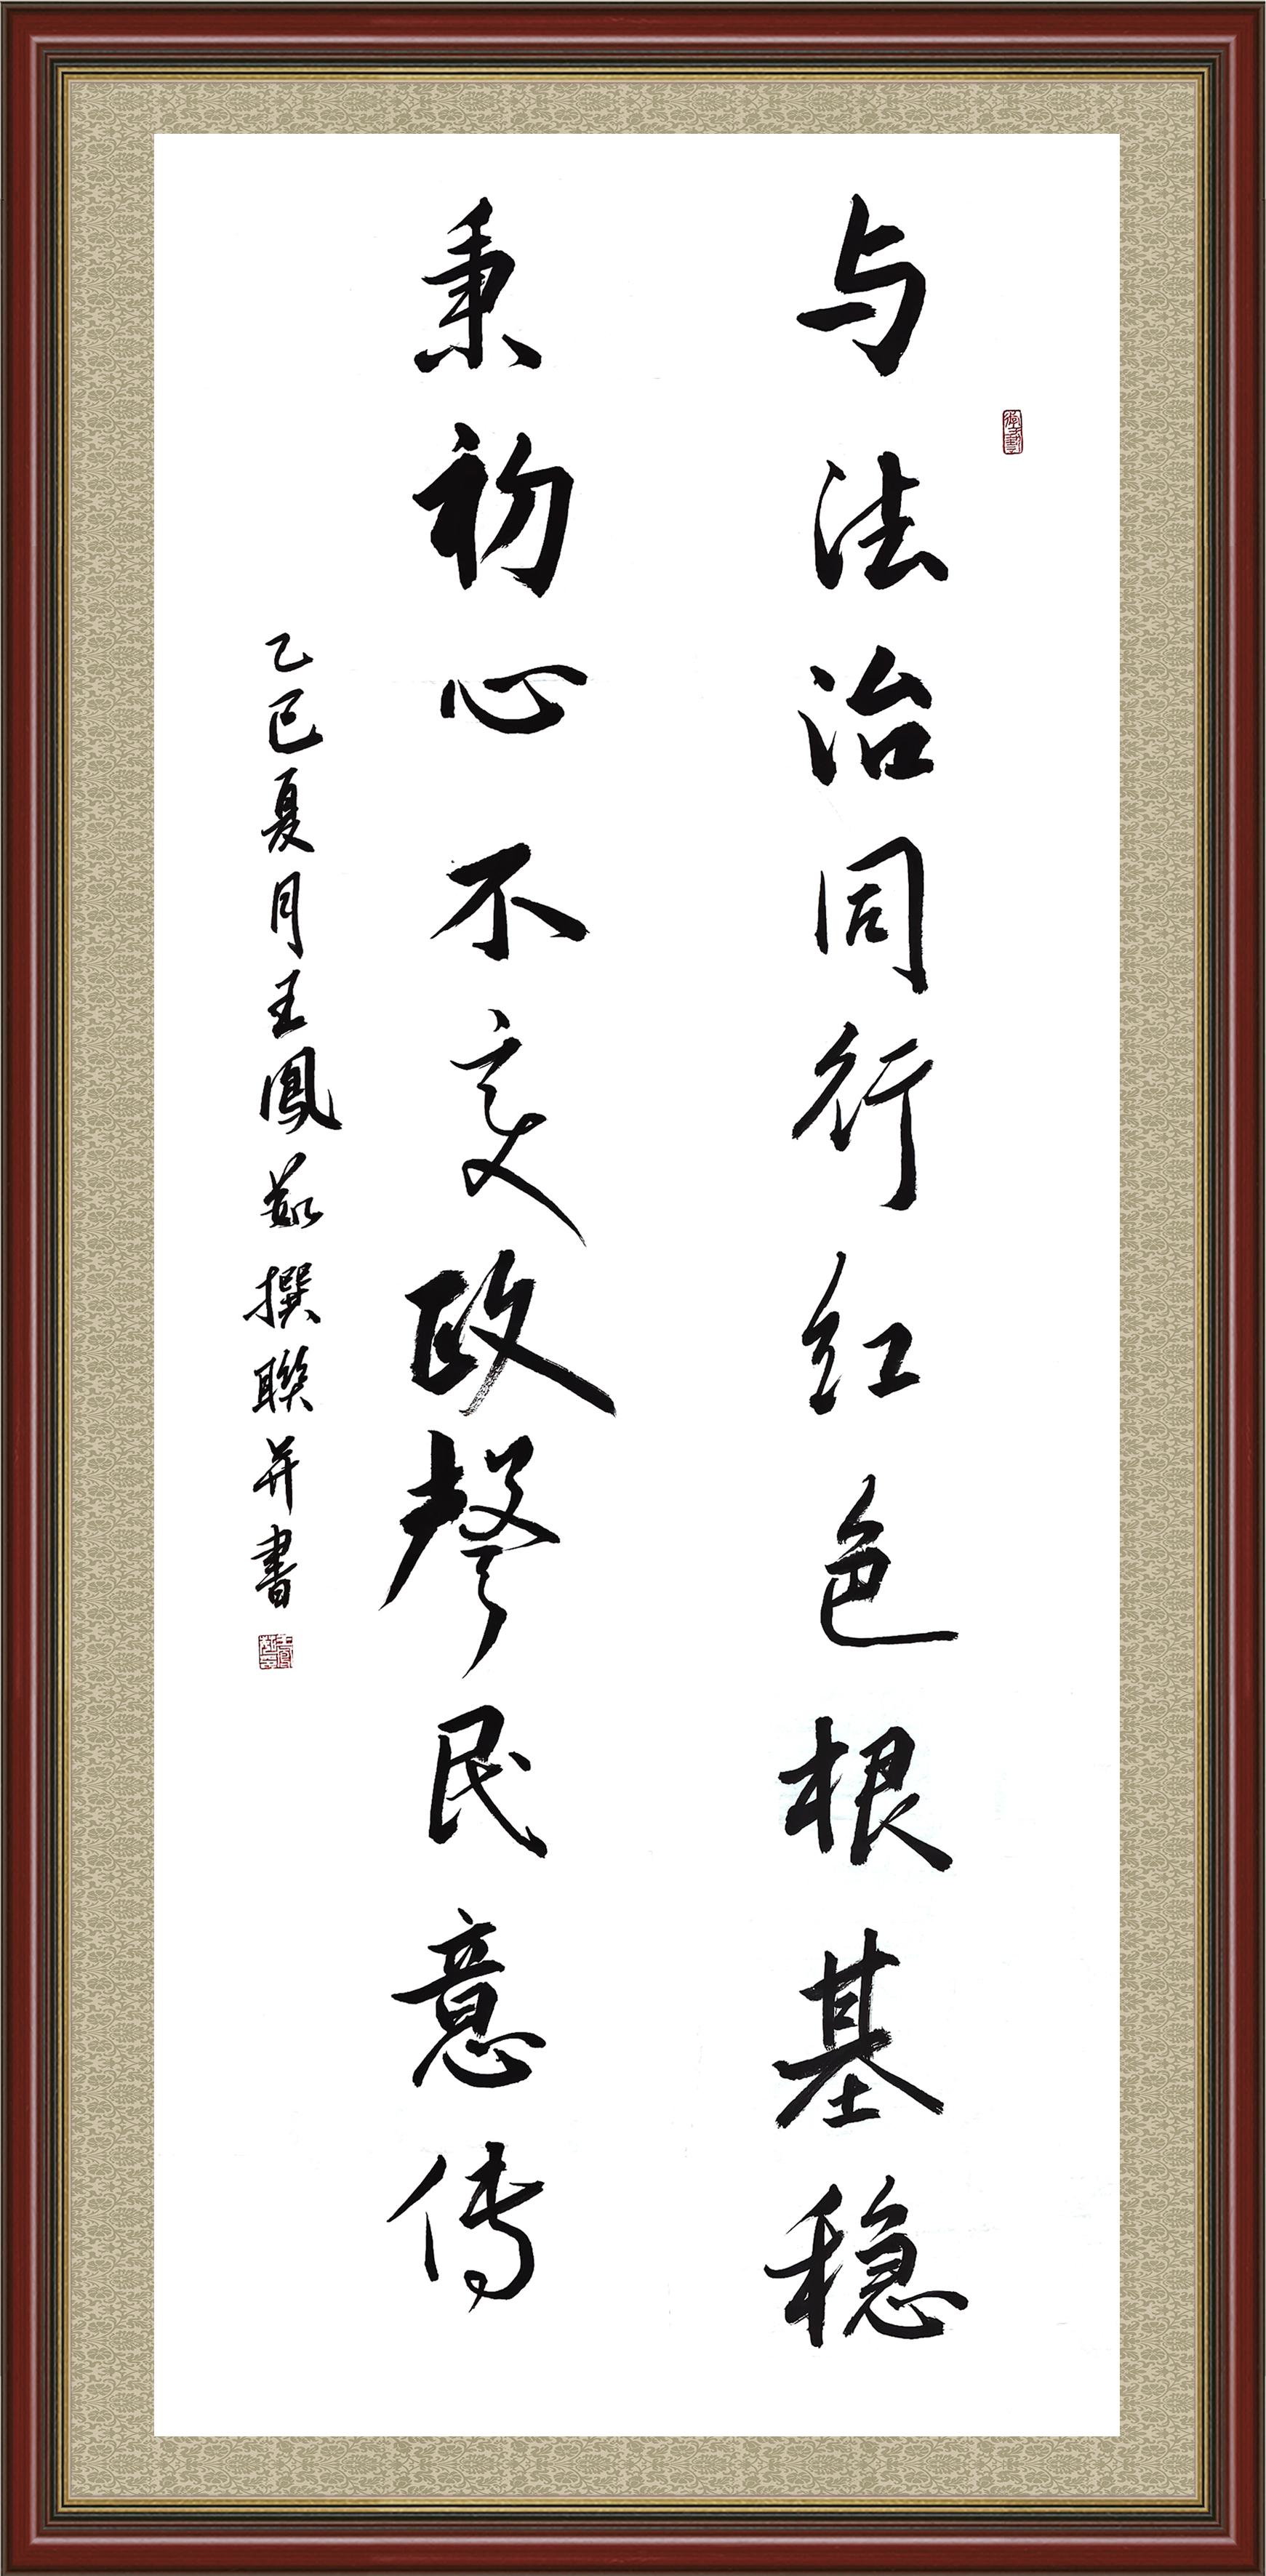 与法治同行红色根基稳
秉初心不变政声民意传
乙巳夏月王鳳茹撰聯并書